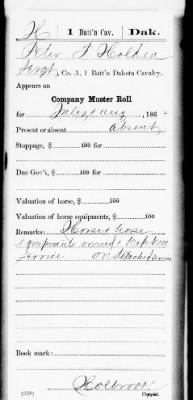 H | 1 Batt'n Cav. | Dak.
Peter F Holden
Sergt, Co. A, 1 Batt'n Dakota Cavalry.
Appears on
Company Muster Roll
for July & Aug, 186
Present or absent Absent
Stoppage, $ 100 for
Due Gov't, $ 100 for
Valuation of horse, $ 100
Valuation of horse equipments, $ 100
Remarks: Horse & horse
equipments
service On detached service
Book mark:
Holbrook
(359) Copyist.